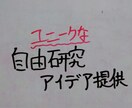 ユニークな
自由研究
アイデア提供